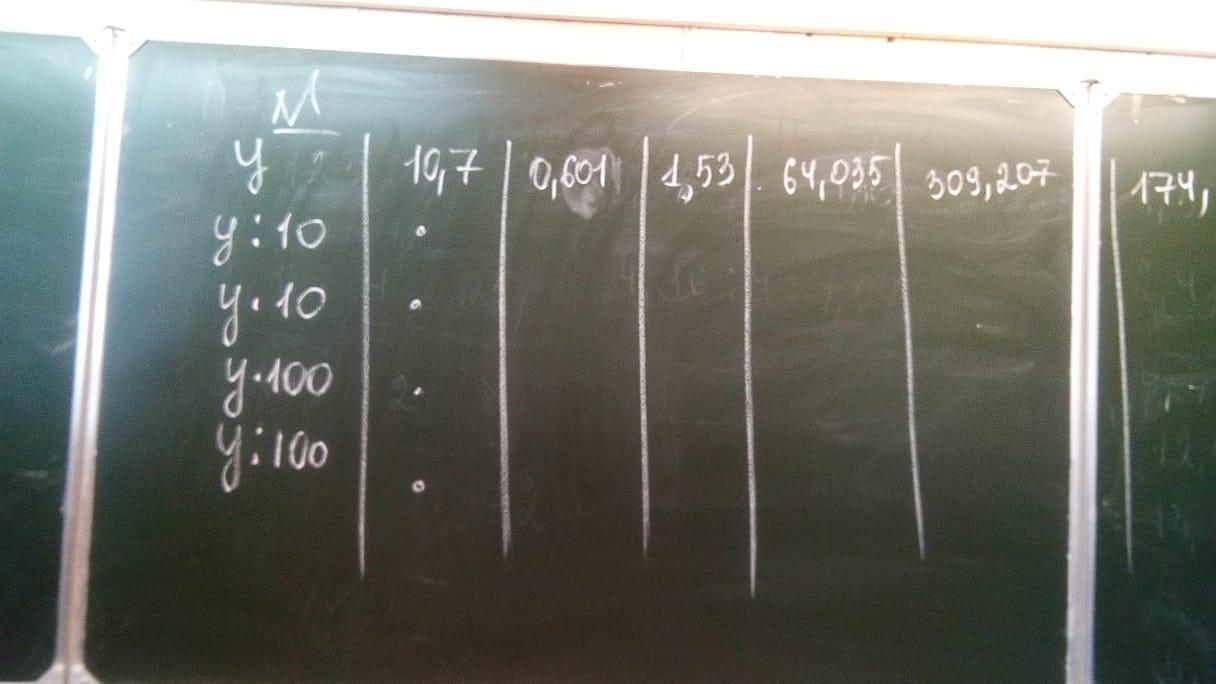 М
у 10,7 0,601 1,53 64,035 309,207 174,
у:10
у·10
у·100
у:100